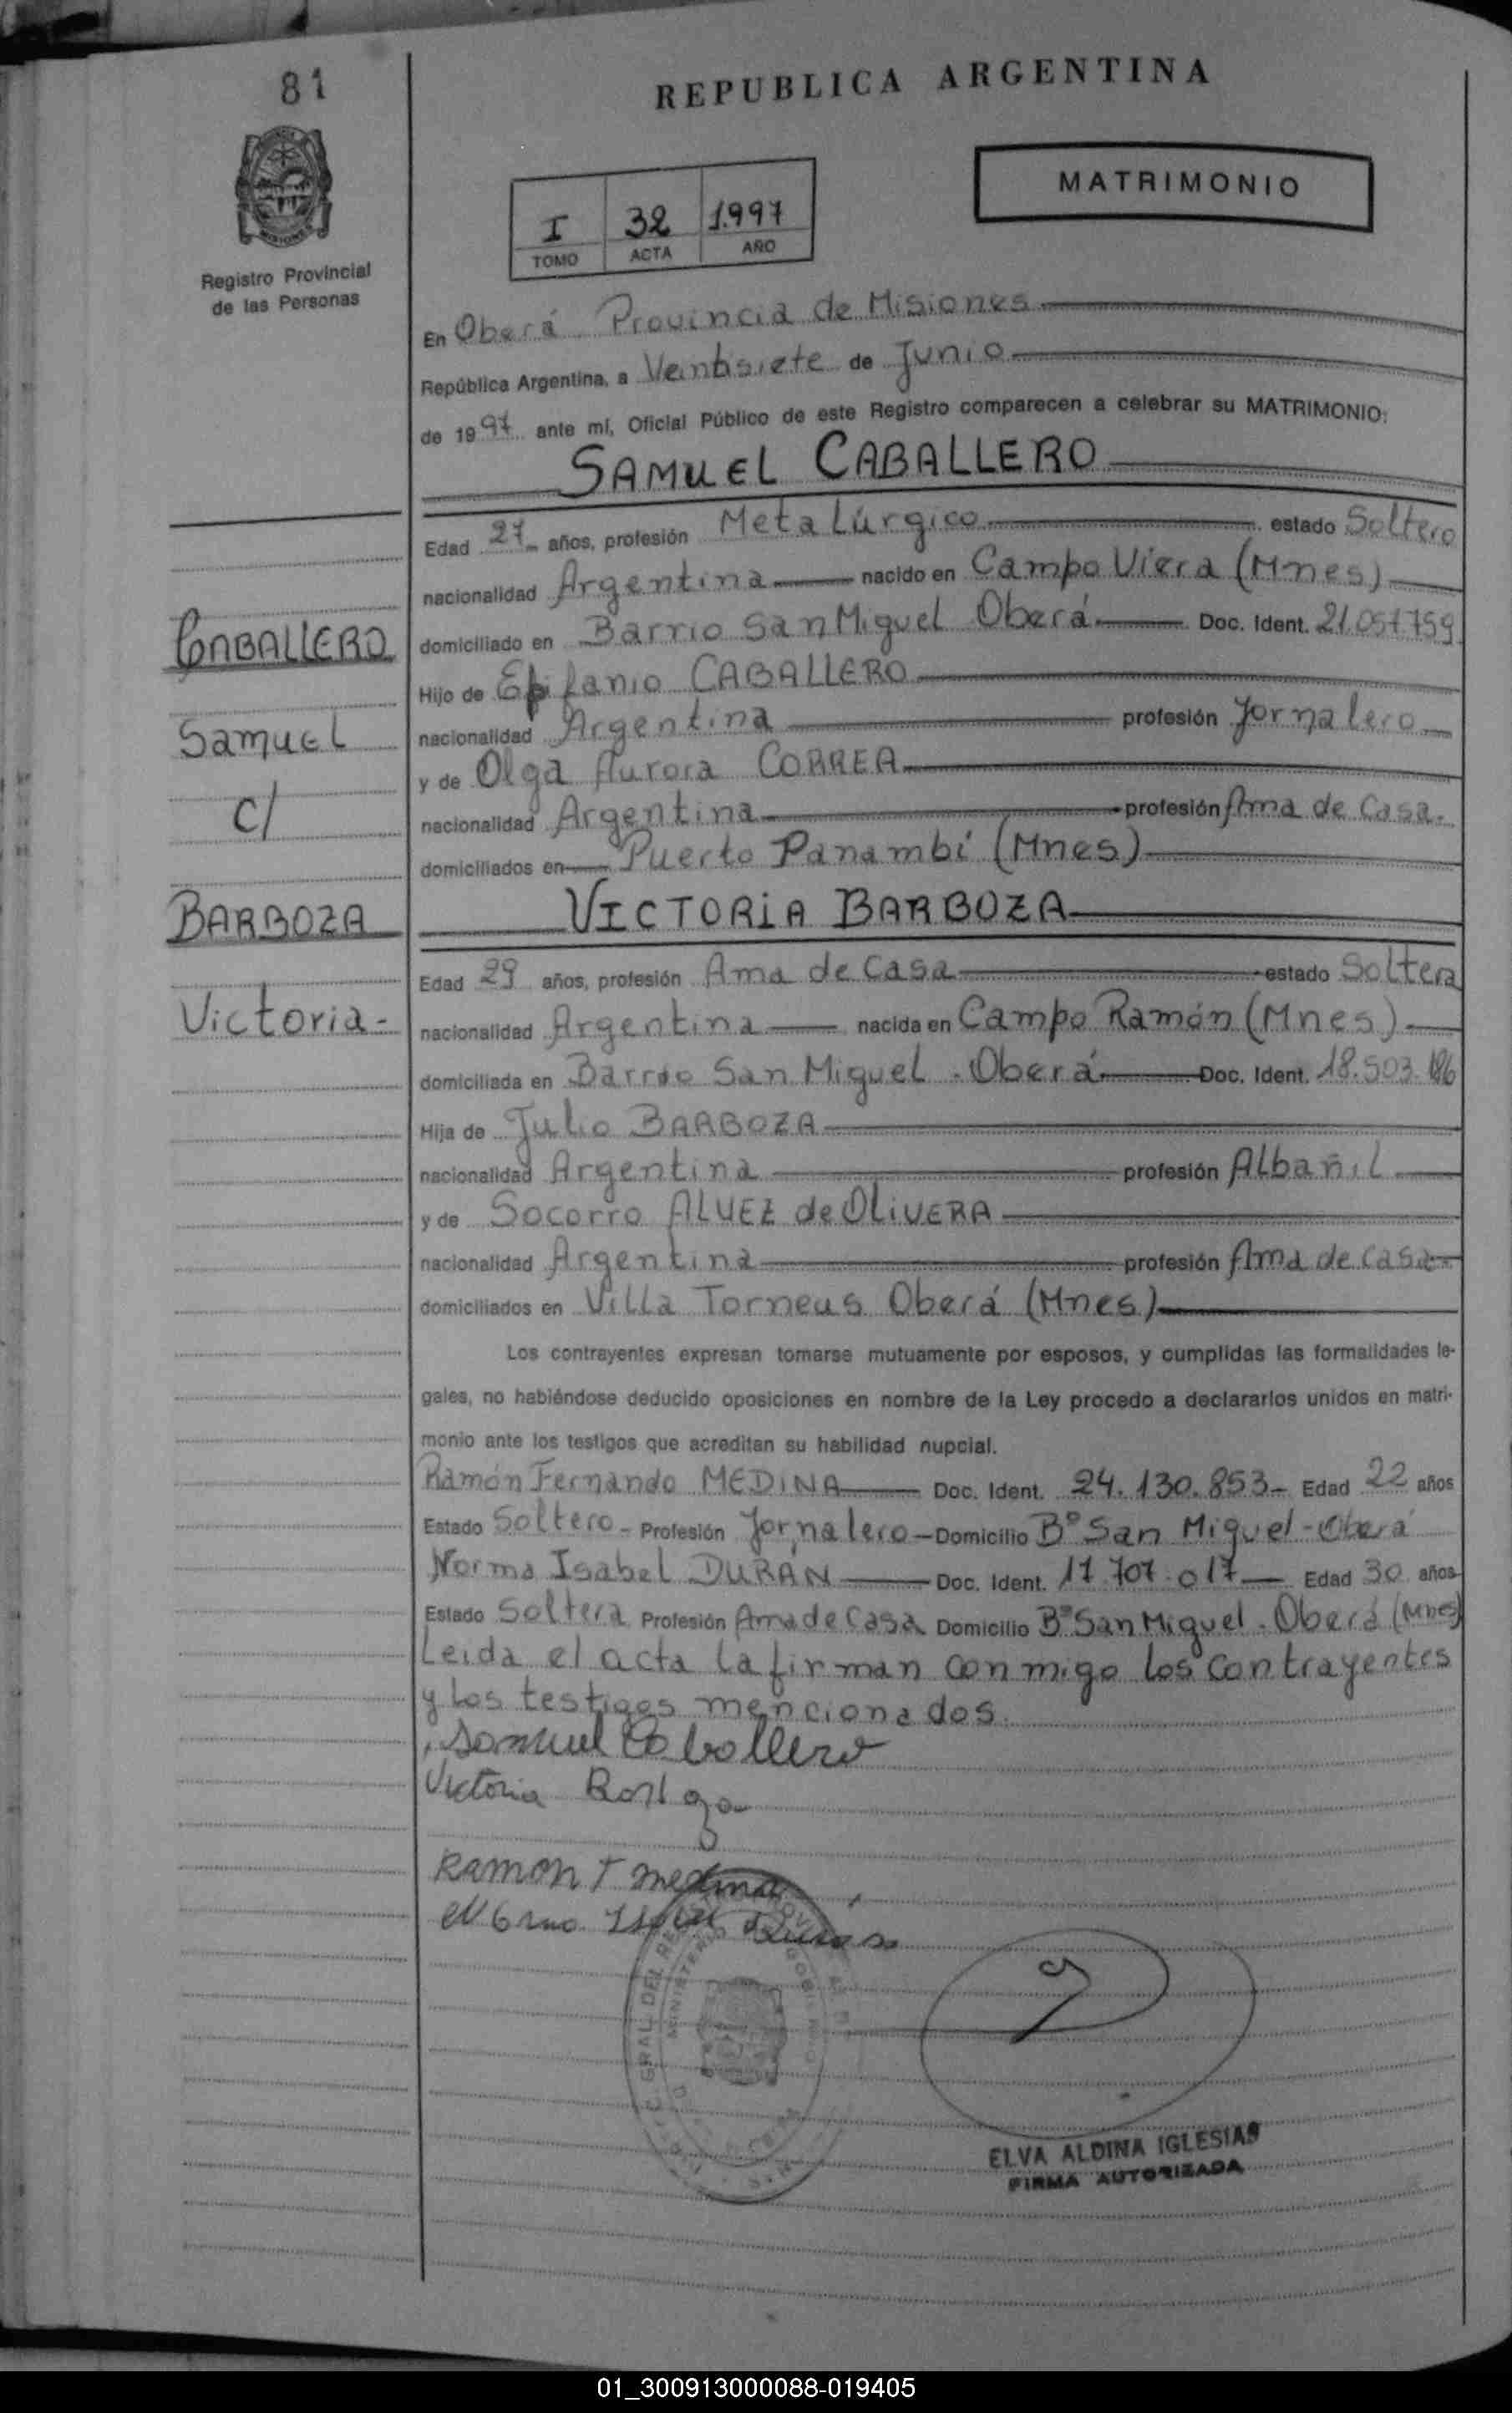 81
REPUBLICA ARGENTINA
MATRIMONIO
I 32 1.997
TOMO ACTA AÑO
Registro Provincial
de las Personas
En Oberá Provincia de Misiones
República Argentina, a Veintisiete de Junio
de 1997 ante mí, Oficial Público de este Registro comparecen a celebrar su MATRIMONIO:
SAMUEL CABALLERO
Edad 27 años, profesión Metalúrgico estado Soltero
nacionalidad Argentina nacido en Campo Viera (Mnes)
domiciliado en Barrio San Miguel Oberá Doc. Ident. 21.057.759
Hijo de Epifanio CABALLERO
nacionalidad Argentina profesión Jornalero
y de Olga Aurora CORREA
nacionalidad Argentina profesión Ama de Casa.
domiciliados en Puerto Panambí (Mnes)
CABALLERO
Samuel
c/
BARBOZA
Victoria-
VICTORIA BARBOZA
Edad 29 años, profesión Ama de Casa estado Soltera
nacionalidad Argentina nacida en Campo Ramón (Mnes)
domiciliada en Barrio San Miguel - Oberá Doc. Ident. 18.503.186
Hija de Julio BARBOZA
nacionalidad Argentina profesión Albañil
y de Socorro ALVEZ de OLIVERA
nacionalidad Argentina profesión Ama de Casa
domiciliados en Villa Torneus Oberá (Mnes)
Los contrayentes expresan tomarse mutuamente por esposos, y cumplidas las formalidades le-
gales, no habiéndose deducido oposiciones en nombre de la Ley procedo a declararlos unidos en matri-
monio ante los testigos que acreditan su habilidad nupcial.
Ramón Fernando MEDINA Doc. Ident. 24.130.853 Edad 22 años
Estado Soltero - Profesión Jornalero - Domicilio Bº San Miguel - Oberá
Norma Isabel DURÁN Doc. Ident. 17.707.017 Edad 30 años
Estado Soltera Profesión Ama de Casa Domicilio Bº San Miguel - Oberá (Mnes)
Leida el acta la firman conmigo los contrayentes
y los testigos mencionados.
Samuel Caballero
Victoria
Ramon F medina
ELVA ALDINA IGLESIAS
FIRMA AUTORIZADA
01_300913000088-019405